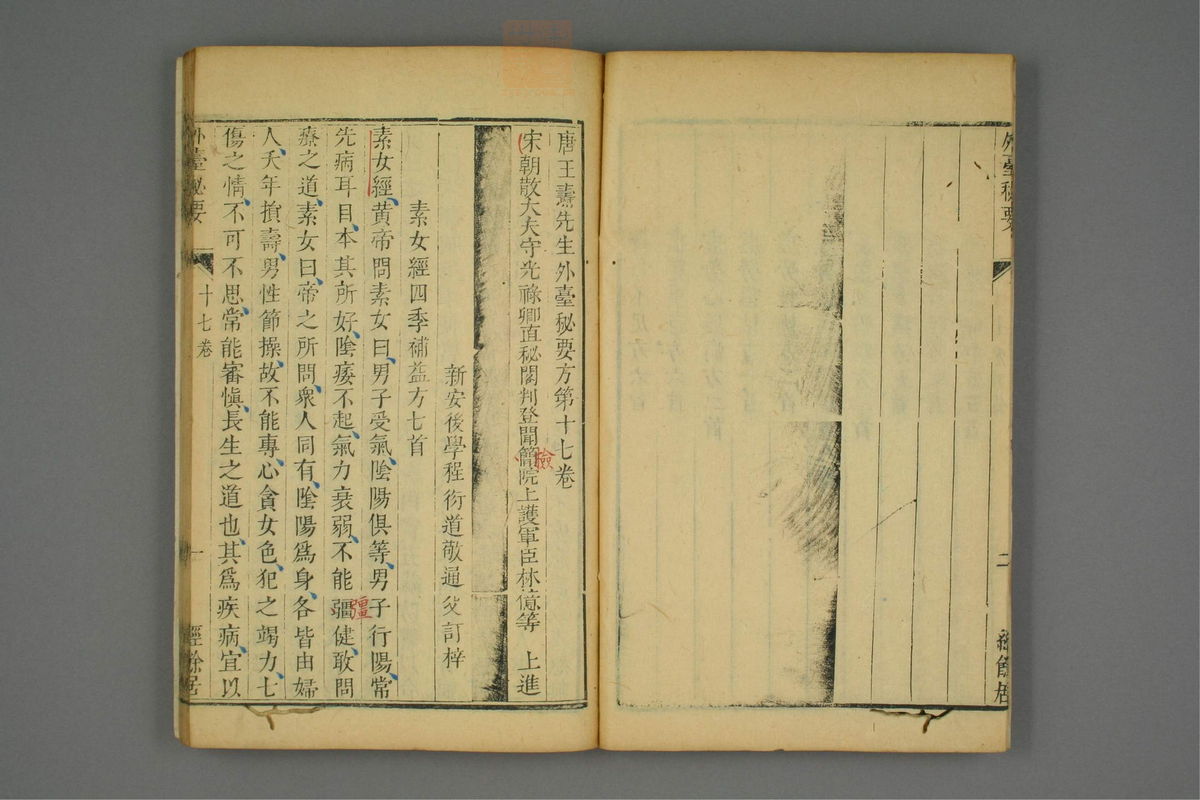 外臺秘要
二
經餘居
唐王燾先生外臺秘要方第十七卷
宋朝散大夫守光祿卿直秘閣判登聞簡院上護軍臣林億等 上進
檢
新安後學程衍道敬通父訂梓
素女經四季補益方七首
素女經黃帝問素女曰男子受氣陰陽俱等男子行陽常
先病耳目本其所好陰痿不起氣力衰弱不能彊健敢問
療之道素女曰帝之所問衆人同有陰陽爲身各皆由婦
人夭年損壽男性節操故不能專心貪女色犯之竭力七
傷之情不可不思常能審愼長生之道也其爲疾病宜以
外臺秘要
十七卷
一
經餘居